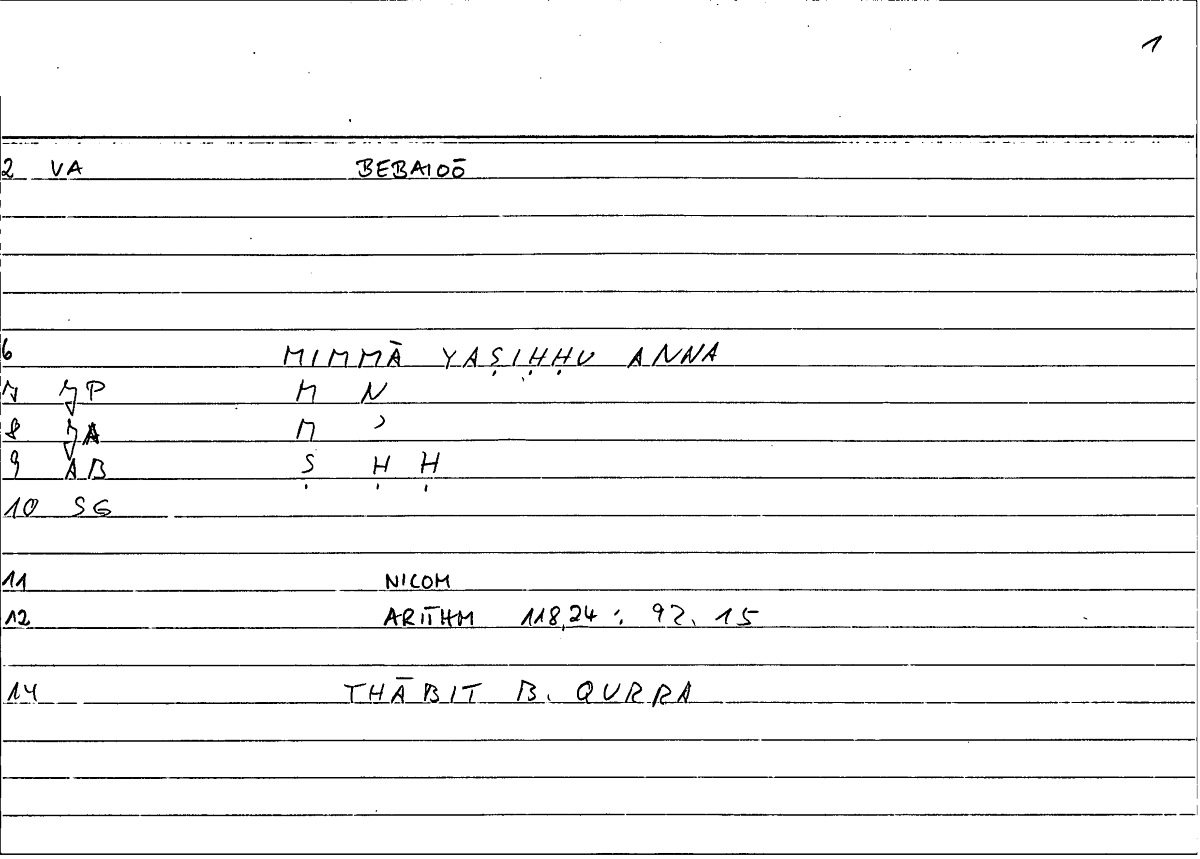 1
2 VA BEBAIOŌ
6 MIMMĀ YAṢIḤḤU ANNA
7 JP M N
8 JA M ʾ
9 AB Ṣ Ḥ Ḥ
10 SG
11 NICOM
12 ARITHM 118,24 : 92. 15
14 THĀBIT B. QURRA